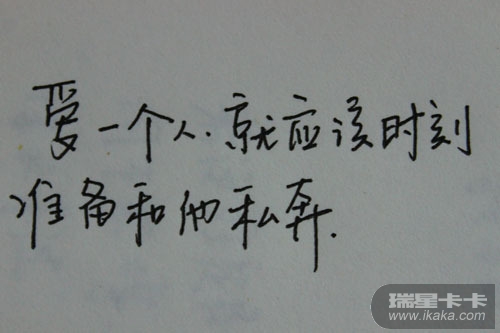 爱一个人.就应该时刻
准备和他私奔.
瑞星卡卡
www.ikaka.com